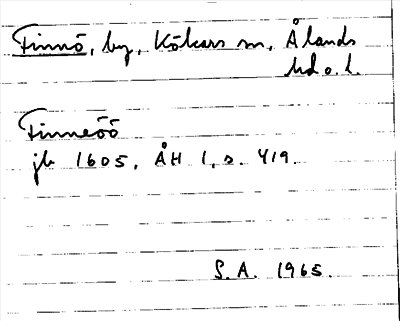 Finnö, by, Kökars sn, Ålands
hd o. l.
Finneöö
jb 1605. ÅH 1, s. 419.
S.A. 1965.